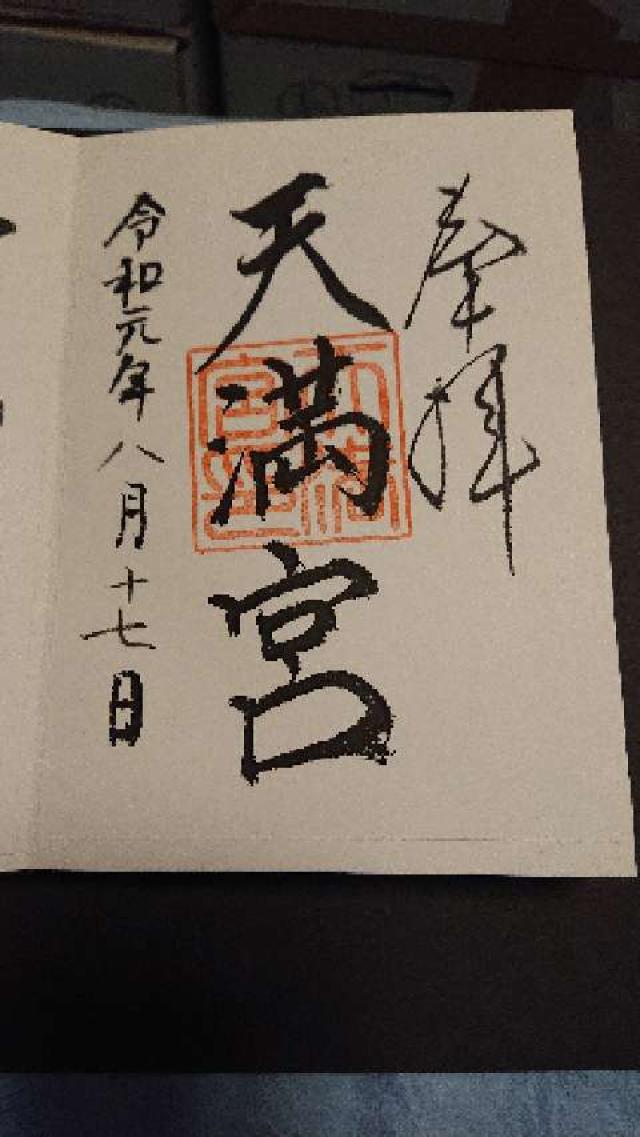 奉拝
天満宮
令和元年八月十七日